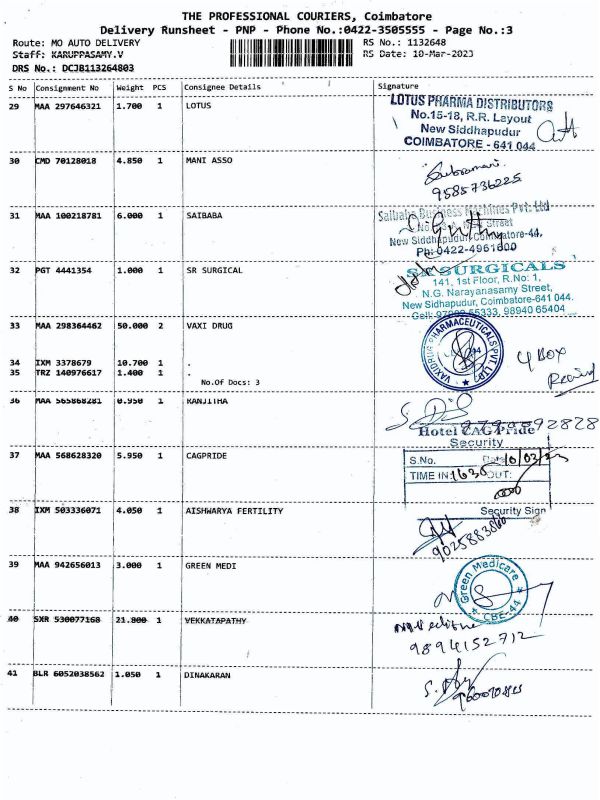 THE PROFESSIONAL COURIERS, Coimbatore
Delivery Runsheet - PNP - Phone No.:0422-3505555 - Page No.:3
Route: MO AUTO DELIVERY RS No.: 1132648
Staff: KARUPPASAMY.V RS Date: 10-Mar-2023
DRS No.: DCJB113264803
S No Consignment No Weight PCS Consignee Details Signature
29 MAA 297646321 1.700 1 LOTUS
LOTUS PHARMA DISTRIBUTORS
No.15-18, R.R. Layout
New Siddhapudur
COIMBATORE - 641 044
30 CMD 70128018 4.850 1 MANI ASSO
9585736225
31 MAA 100218781 6.000 1 SAIBABA
Saibaba Business Machines Pvt. Ltd
Street
New Siddhapudur, Coimbatore-44.
Ph: 0422-4961600
32 PGT 4441354 1.000 1 SR SURGICAL
SR SURGICALS
141, 1st Floor, R.No: 1,
N.G. Narayanasamy Street,
New Sidhapudur, Coimbatore-641 044.
Cell: 55333, 98940 65404
33 MAA 298364462 50.000 2 VAXI DRUG
VAXIDRUG PHARMACEUTICALS PVT. LTD
34 IXM 3378679 10.700 1 .
35 TRZ 140976617 1.400 1 .
No.Of Docs: 3
4 Box
36 MAA 565868281 0.950 1 RANJITHA
37 MAA 568628320 5.950 1 CAGPRIDE
Hotel CAG Pride
Security
S.No. Date 10/03/23
TIME IN: 1630 OUT:
Security Sign
38 IXM 503336071 4.050 1 AISHWARYA FERTILITY
39 MAA 942656013 3.000 1 GREEN MEDI
Green Medicare
CBE-44
40 SXR 530077168 21.800 1 VEKKATAPATHY
9894152712
41 BLR 6052038562 1.050 1 DINAKARAN